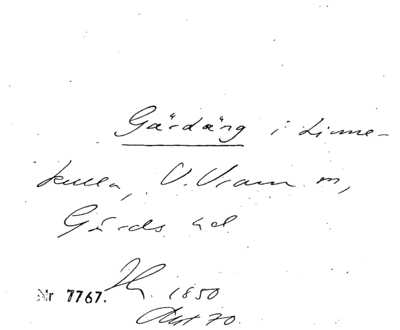 Gärdäng i Linne-
kulla, V. Vram sn,
Gärds hd
Nr 7767. 1850
Akt 70.